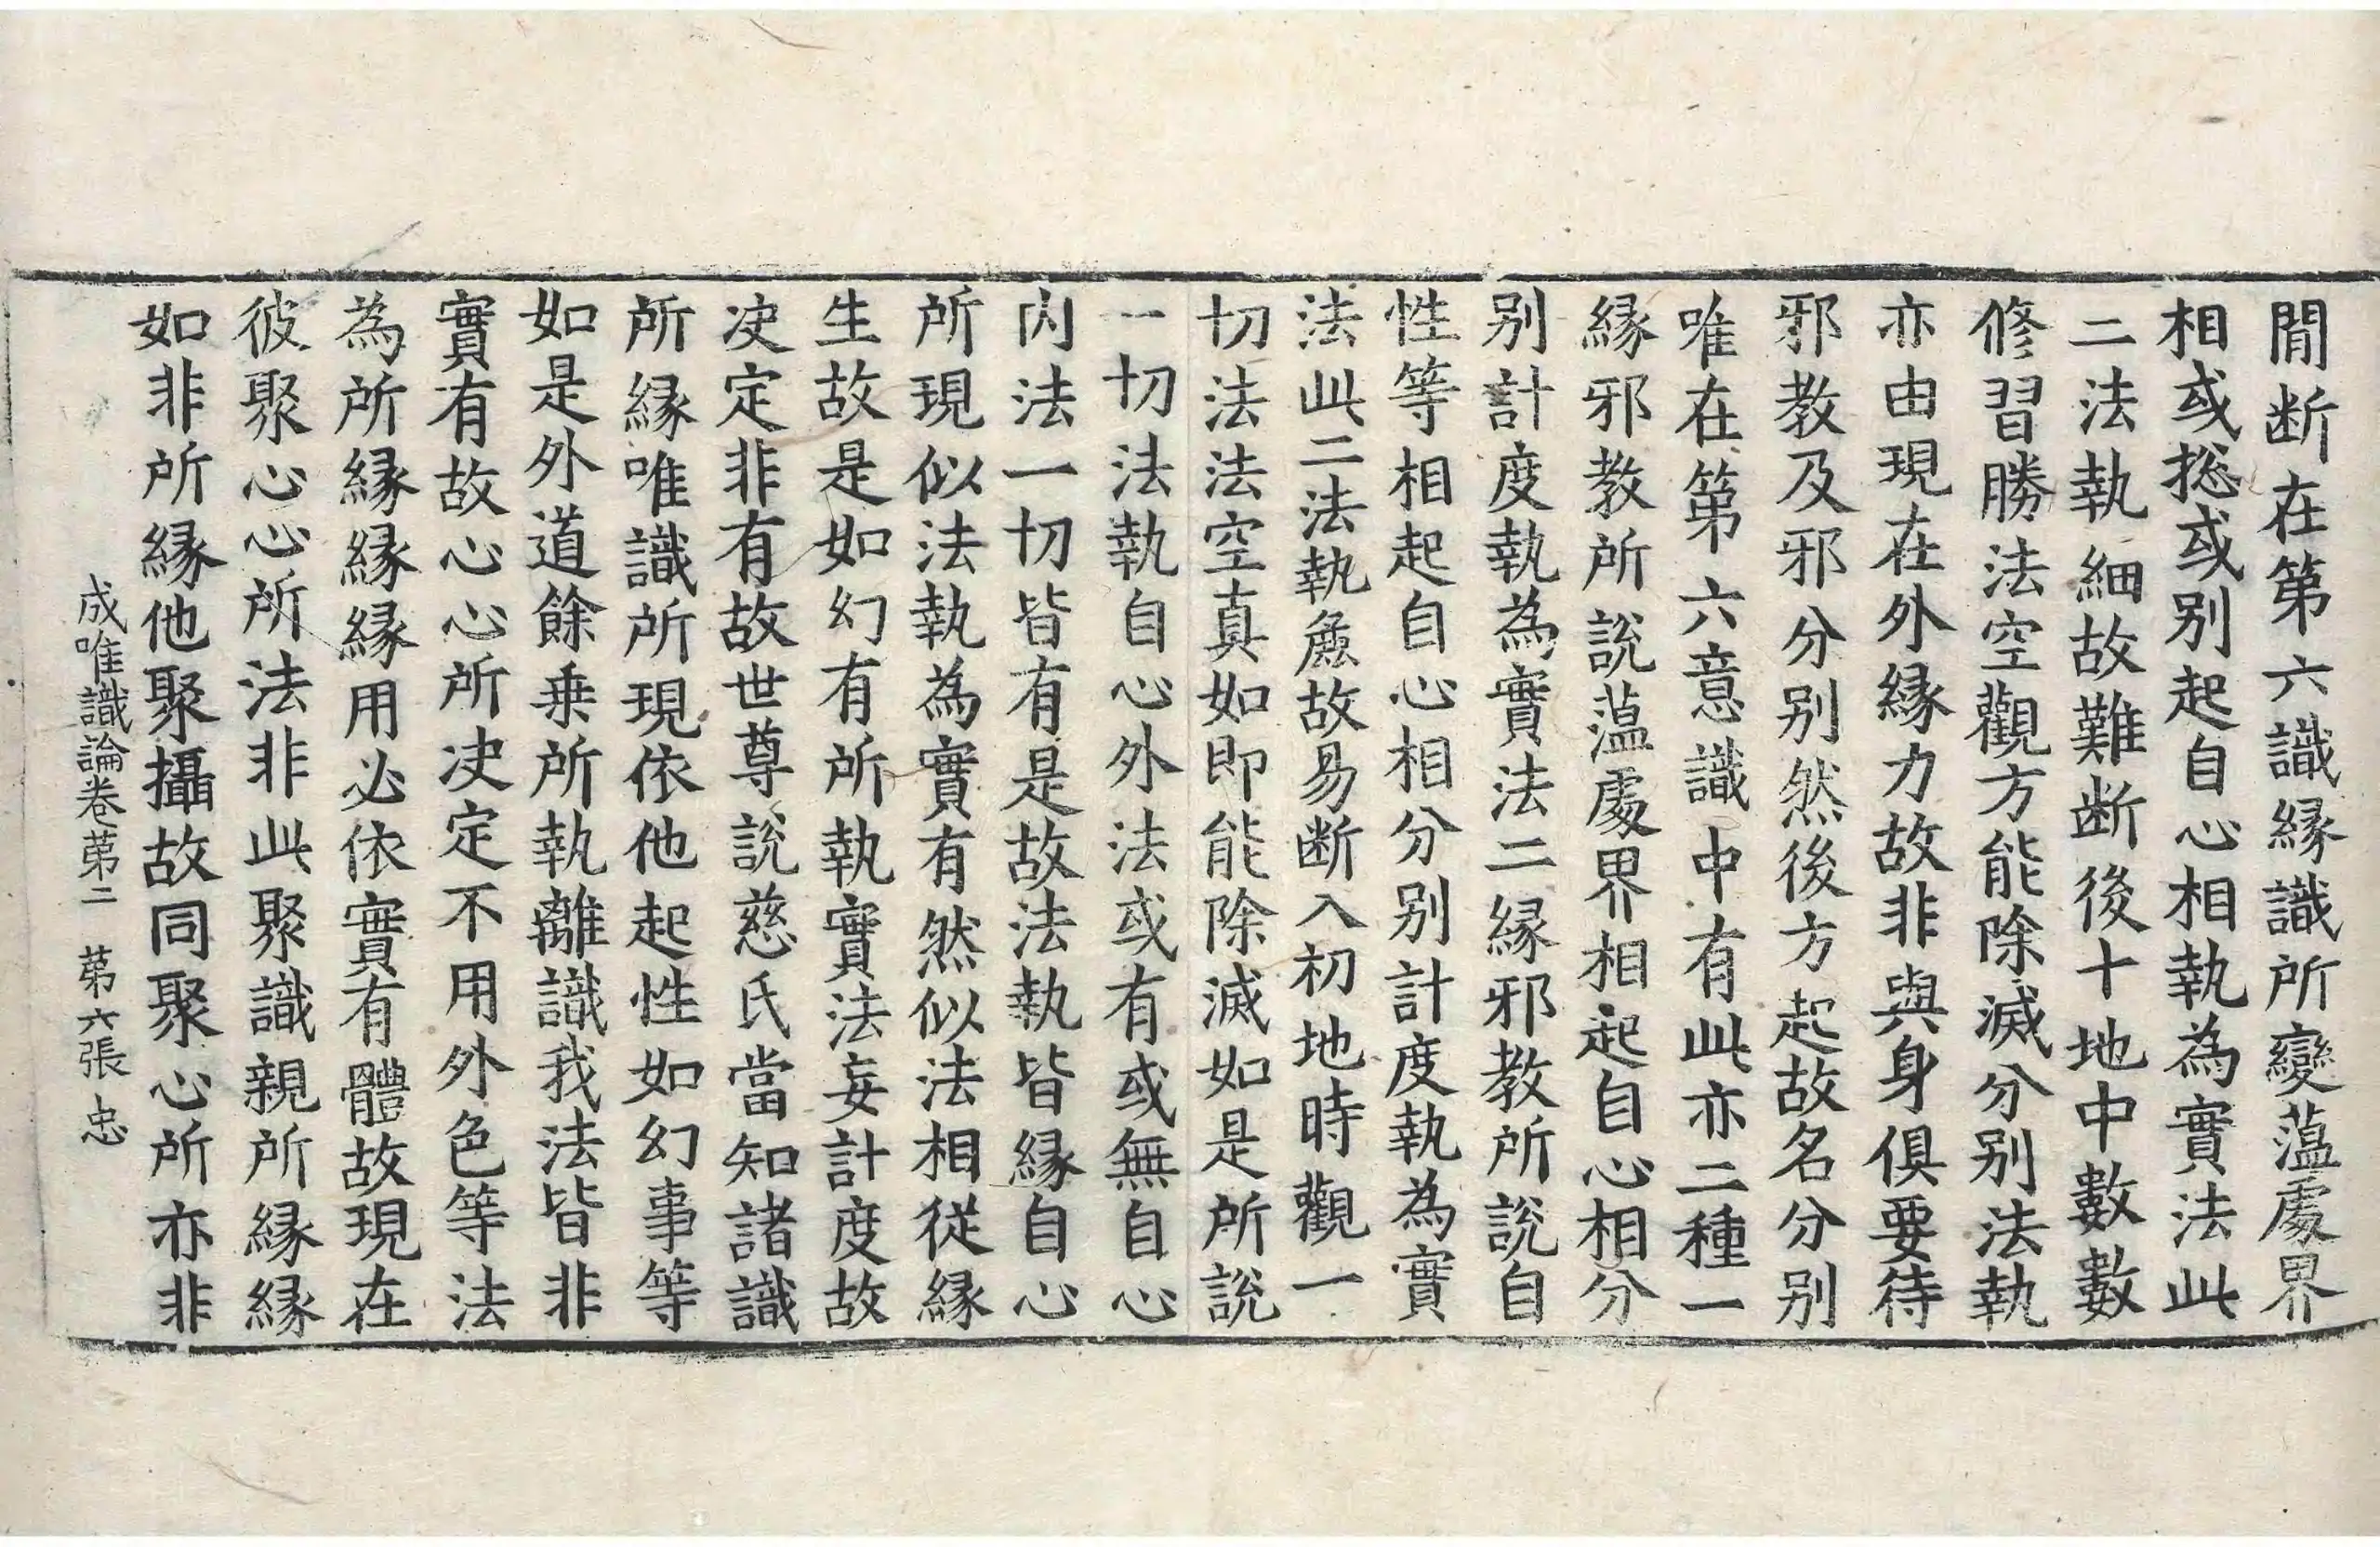 閒断在第六識縁識所變薀處界
相或捴或别起自心相執為實法此
二法執細故難断後十地中數數
修習勝法空觀方能除滅分别法執
亦由現在外縁力故非與身俱要待
邪教及邪分别然後方起故名分别
唯在第六意識中有此亦二種一
縁邪教所說薀處界相起自心相分
别計度執為實法二縁邪教所說自
性等相起自心相分别計度執為實
法此二法執麁故易断入初地時觀一
切法法空真如即能除滅如是所說
一切法執自心外法或有或無自心
内法一切皆有是故法執皆縁自心
所現似法執為實有然似法相從縁
生故是如幻有所執實法妄計度故
决定非有故世尊說慈氏當知諸識
所縁唯識所現依他起性如幻事等
如是外道餘乗所執離識我法皆非
實有故心心所决定不用外色等法
為所縁縁縁用必依實有體故現在
彼聚心心所法非此聚識親所縁縁
如非所縁他聚攝故同聚心所亦非
成唯識論卷苐二　苐六張　忠